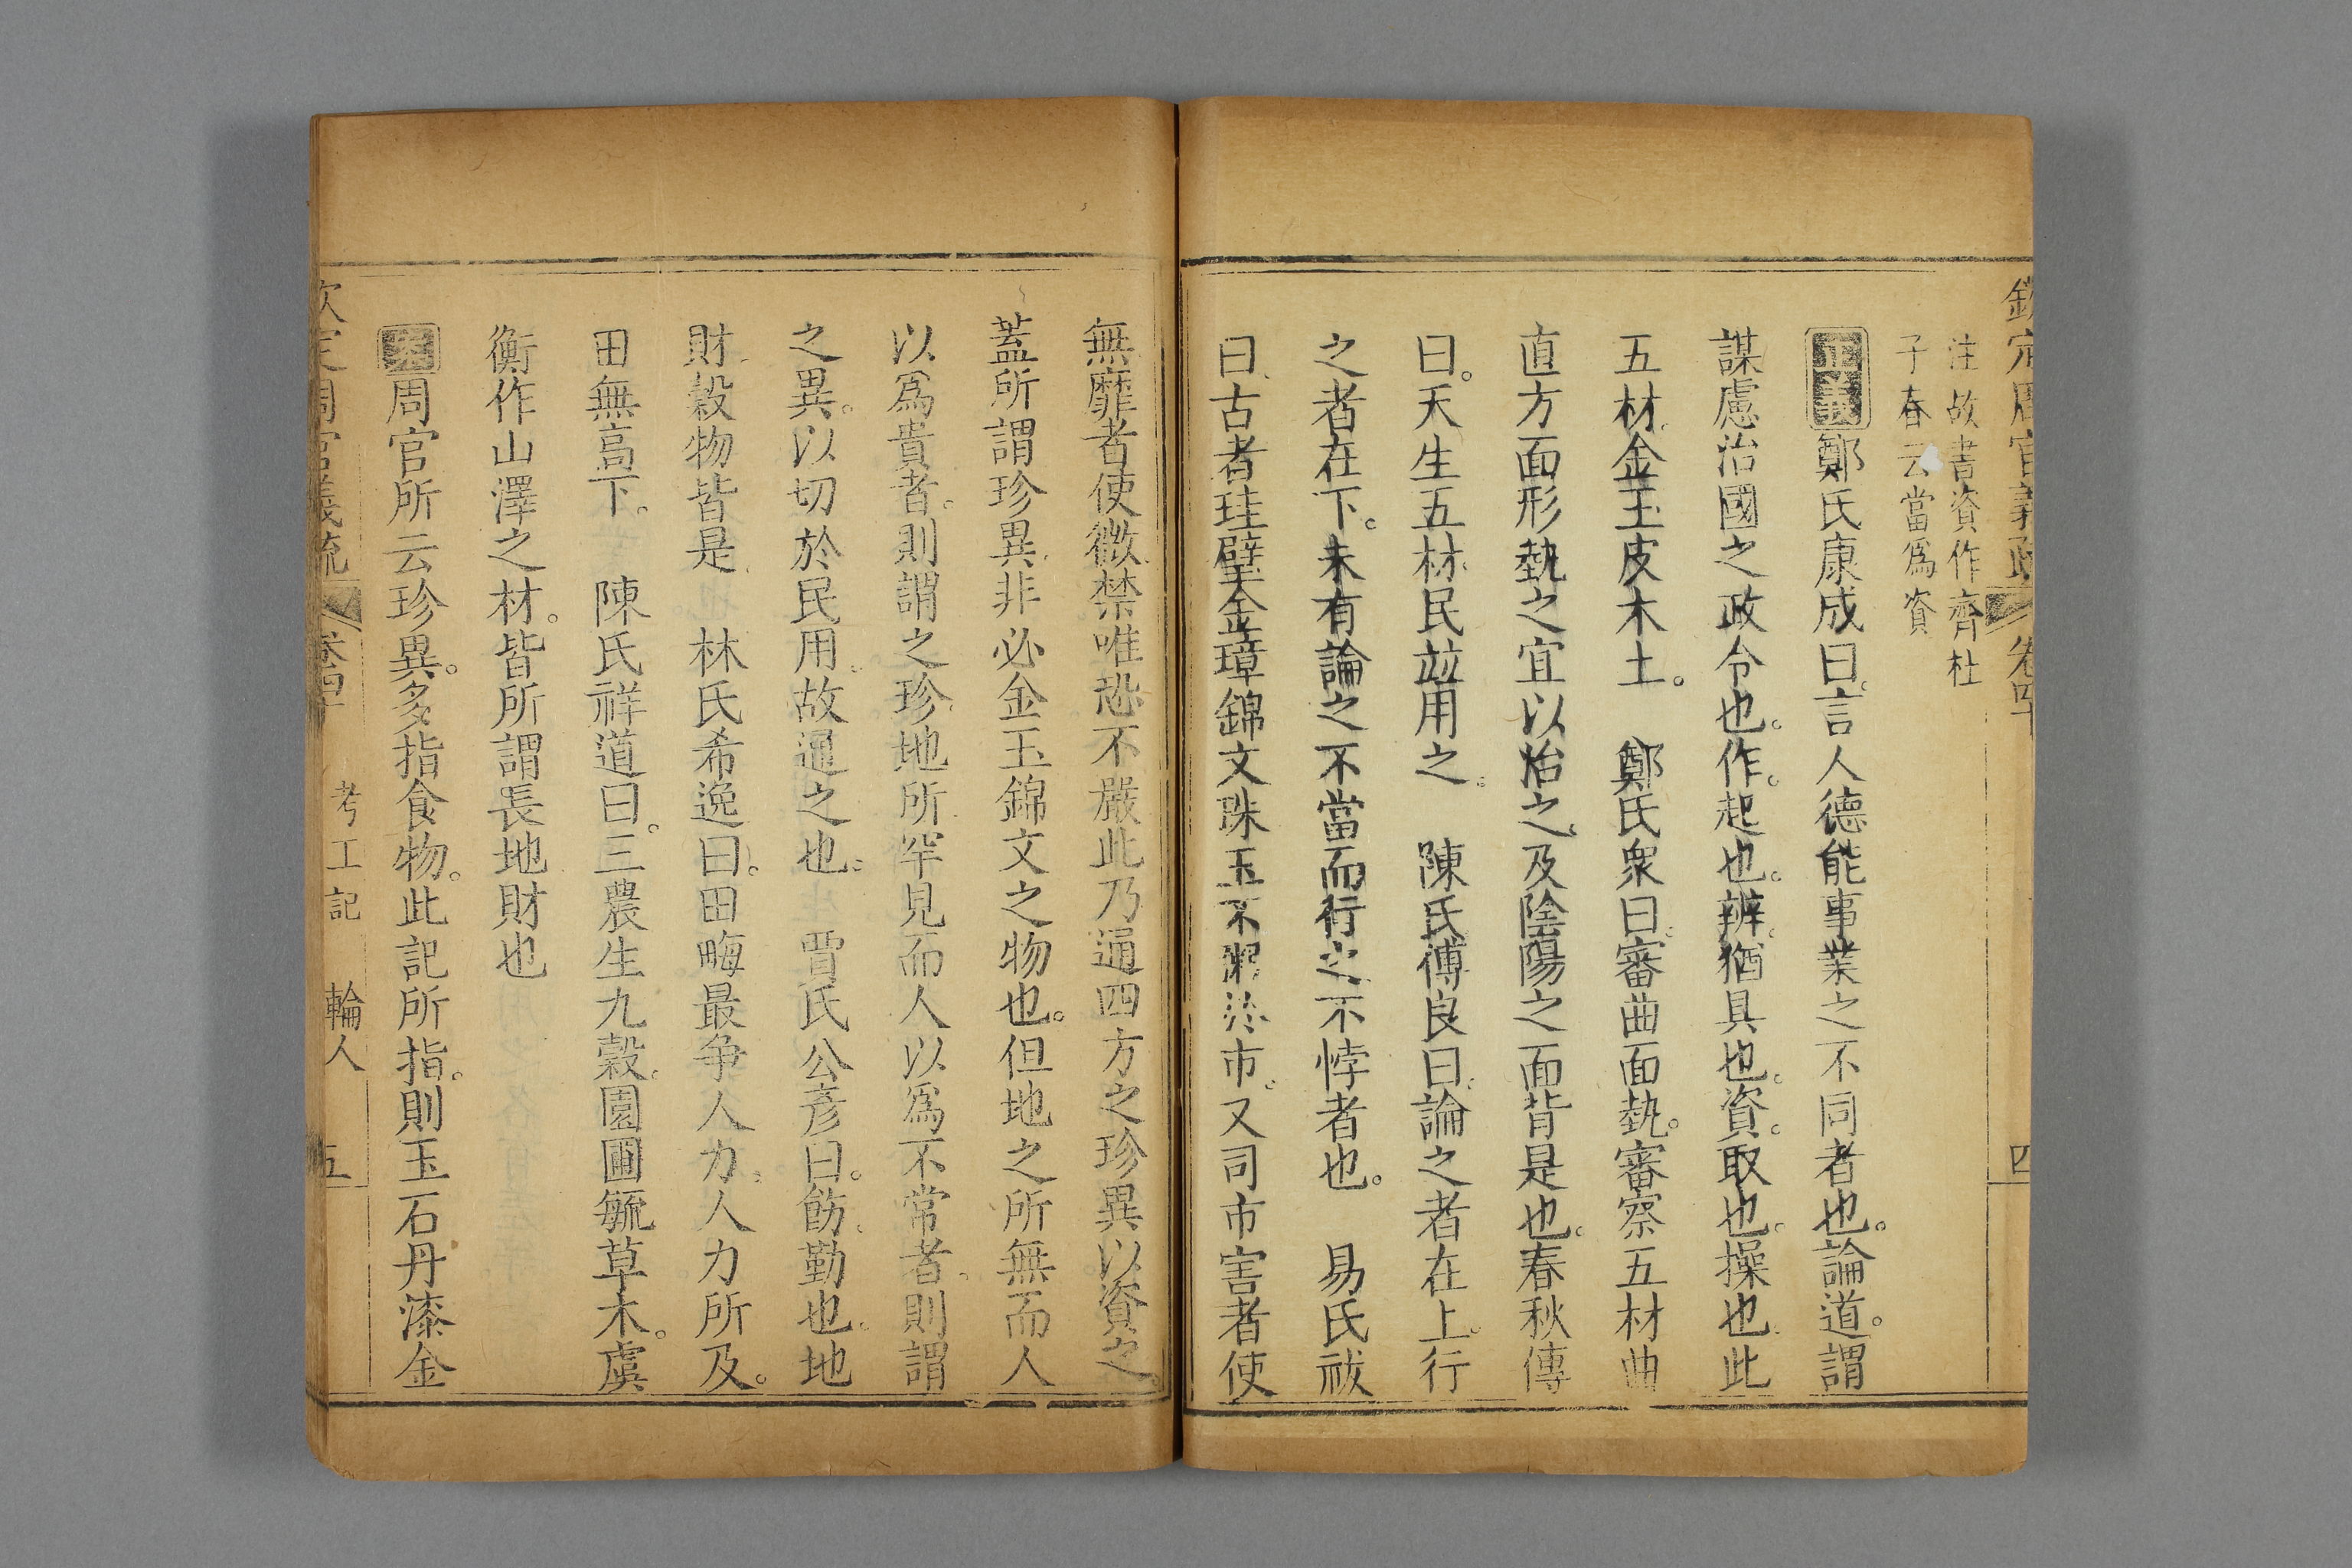 欽定周官義疏 卷四十 四
注故書資作齊杜
子春云當爲資
正義鄭氏康成曰言人德能事業之不同者也。論道。謂
謀慮治國之政令也。作。起也。辨。猶具也。資。取也。操也此
五材。金玉皮木土。 鄭氏衆曰。審曲面埶。審察五材曲
直方面形埶之宜以治之。及陰陽之面背是也。春秋傳
曰。天生五材。民竝用之。 陳氏傅良曰。論之者在上。行
之者在下。未有論之不當而行之不悖者也。 易氏祓
曰。古者珪璧金璋錦文珠玉不粥於市。又司市害者使
無靡者使微禁唯恐不嚴此乃通四方之珍異以資之。
蓋所謂珍異。非必金玉錦文之物也。但地之所無而人
以爲貴者。則謂之珍。地所罕見而人以爲不常者。則謂
之異。以切於民用。故通之也。 賈氏公彥曰。飭。勤也。地
財。穀物皆是。 林氏希逸曰。田畮最争人力。人力所及。
田無高下。 陳氏祥道曰。三農生九穀。園圃毓草木。虞
衡作山澤之材。皆所謂長地財也
案周官所云珍異。多指食物。此記所指。則玉石丹漆金
欽定周官義疏 卷四十 考工記 輪人 五